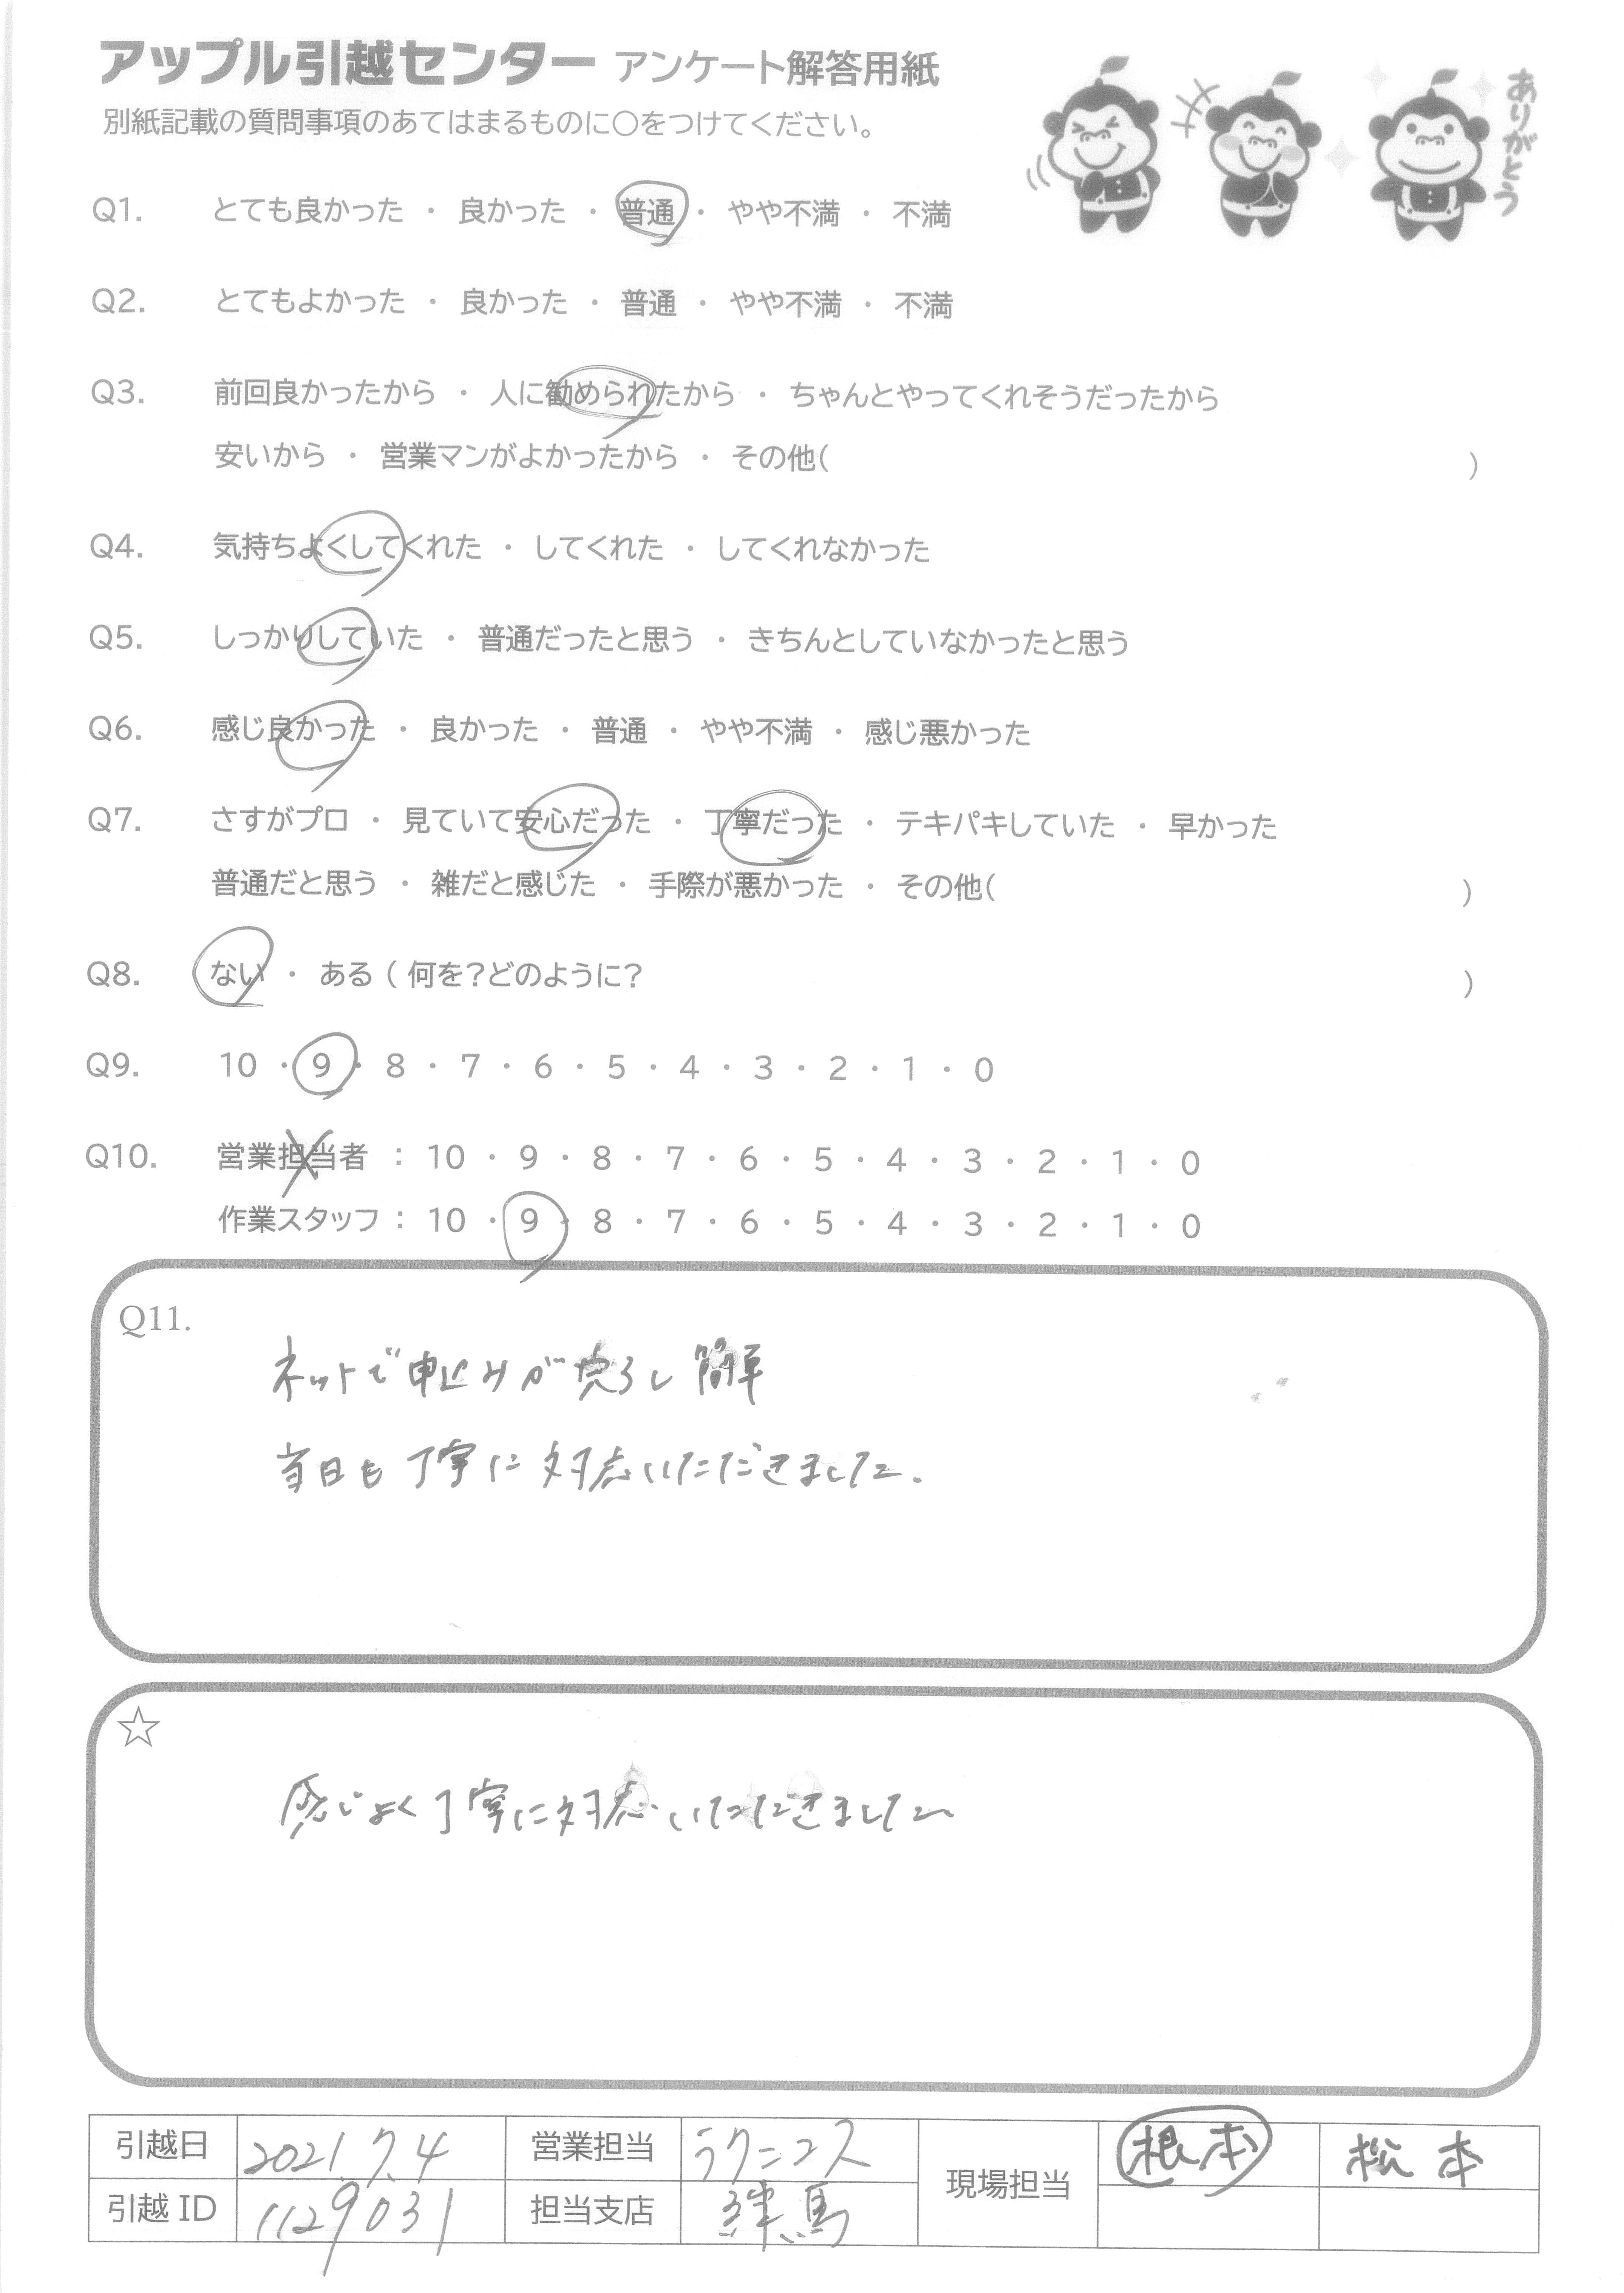 アップル引越センター アンケート解答用紙
別紙記載の質問事項のあてはまるものに○をつけてください。
ありがとう
Q1. とても良かった ・ 良かった ・ 普通 ・ やや不満 ・ 不満
Q2. とてもよかった ・ 良かった ・ 普通 ・ やや不満 ・ 不満
Q3. 前回良かったから ・ 人に勧められたから ・ ちゃんとやってくれそうだったから
安いから ・ 営業マンがよかったから ・ その他( )
Q4. 気持ちよくしてくれた ・ してくれた ・ してくれなかった
Q5. しっかりしていた ・ 普通だったと思う ・ きちんとしていなかったと思う
Q6. 感じ良かった ・ 良かった ・ 普通 ・ やや不満 ・ 感じ悪かった
Q7. さすがプロ ・ 見ていて安心だった ・ 丁寧だった ・ テキパキしていた ・ 早かった
普通だと思う ・ 雑だと感じた ・ 手際が悪かった ・ その他( )
Q8. ない ・ ある ( 何を?どのように? )
Q9. 10 ・ 9 ・ 8 ・ 7 ・ 6 ・ 5 ・ 4 ・ 3 ・ 2 ・ 1 ・ 0
Q10. 営業担当者 : 10 ・ 9 ・ 8 ・ 7 ・ 6 ・ 5 ・ 4 ・ 3 ・ 2 ・ 1 ・ 0
作業スタッフ : 10 ・ 9 ・ 8 ・ 7 ・ 6 ・ 5 ・ 4 ・ 3 ・ 2 ・ 1 ・ 0
Q11.
ネットで申込みが完了し簡単
当日も丁寧に対応いただきました.
☆
感じよく丁寧に対応いただきました。
引越日 2021.7.4 営業担当 ラクニコス 現場担当 根本 松本
引越 ID 1129031 担当支店 練馬